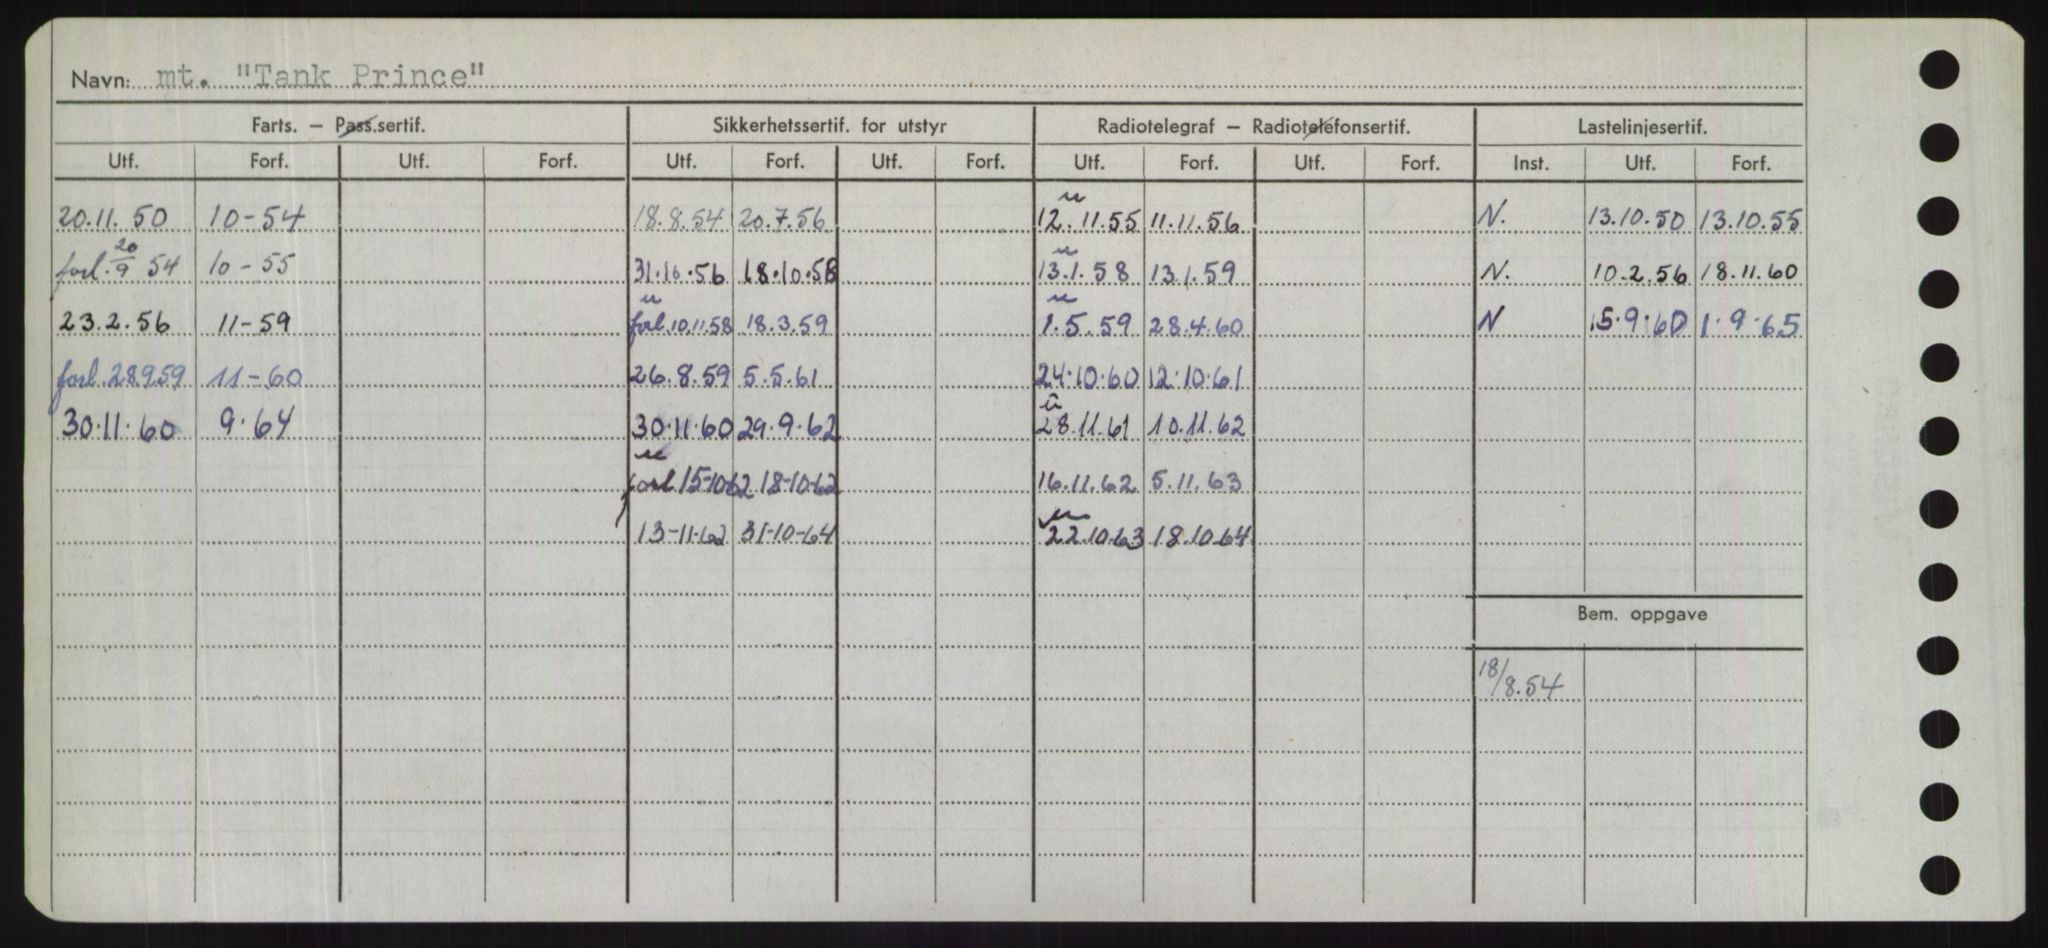 Navn: mt. "Tank Prince"
Farts. – Pass.sertif. Sikkerhetssertif. for utstyr Radiotelegraf – Radiotelefonsertif. Lastelinjesertif.
Utf. Forf. Utf. Forf. Utf. Forf. Utf. Forf. Utf. Forf. Utf. Forf. Inst. Utf. Forf.
20.11.50 10-54 18.8.54 20.7.56 u 12.11.55 11.11.56 N. 13.10.50 13.10.55
forl. 20/9 54 10-55 31.10.56 18.10.58 u 13.1.58 13.1.59 N. 10.2.56 18.11.60
23.2.56 11-59 u forl 10.11.58 18.3.59 u 1.5.59 28.4.60 N 15.9.60 1.9.65
forl. 28.9.59 11-60 26.8.59 5.5.61 24.10.60 12.10.61
30.11.60 9.64 30.11.60 29.9.62 u 28.11.61 10.11.62
u forl 15-10-62 18-10-62 16.11.62 5.11.63
13-11-62 31-10-64 u 22.10.63 18.10.64
Bem. oppgave
18/8.54